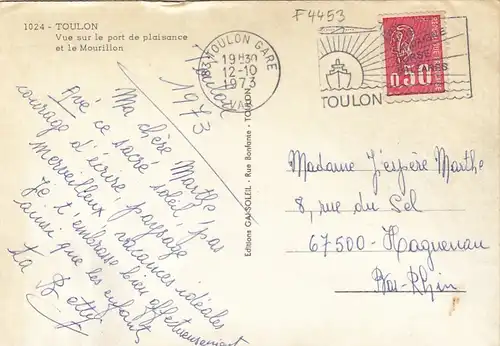 1024 - TOULON
Vue sur le port de plaisance
et le Mourillon
F4453
83 TOULON GARE
19H30
12-10
1973
VAR
TOULON
0,50
Toulon
1973
Ma chère Marthe,
Avé ce sacre soleil pas
courage d'écrire, paysage
merveilleux, vacances idéales
Je t'embrasse bien affectueusement
ainsi que les enfants
Ta Betty
Editions GAI-SOLEIL - Rue Bonfante - TOULON
Madame J'espère Marthe
8, rue du Sel
67500 - Haguenau
Bas-Rhin